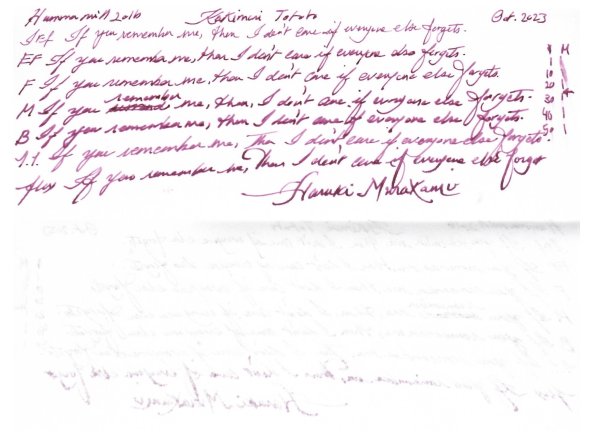 Hammermill 20lb Kakimori Tototo Oct. 2023
If you remember me, then I don't care if everyone else forgets.
EF If you remember me, then I don't care if everyone else forgets.
F If you remember me, then I don't care if everyone else forgets.
M If you remember me, then, I don't care if everyone else forgets.
B If you remember me, then I don't care if everyone else forgets.
1.1. If you remember me, then I don't care if everyone else forgets.
flex If you remember me, then I don't care if everyone else forget
Haruki Murakami
M
10
20
30
40
50